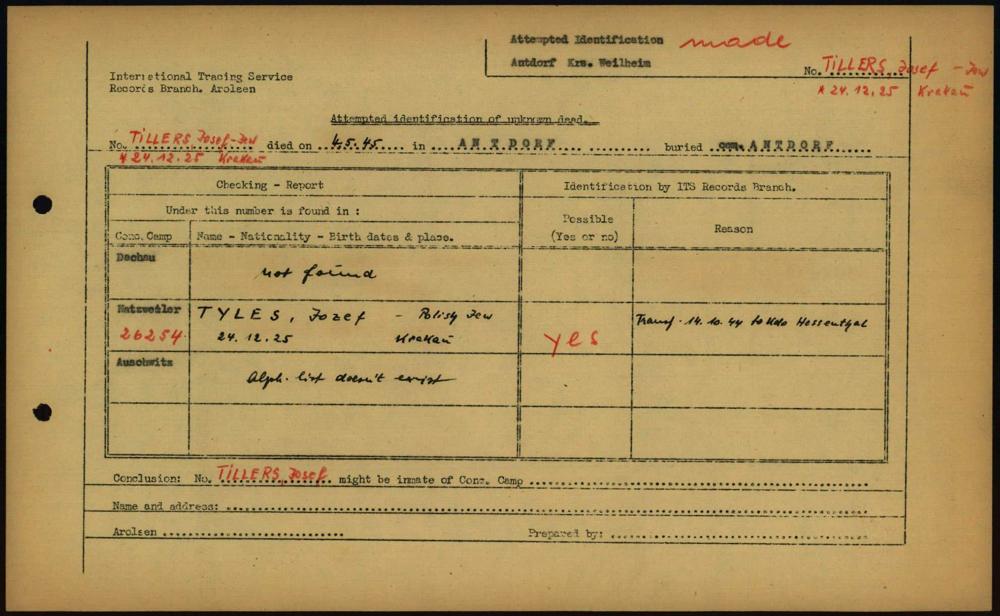 Attempted Identification made
Antdorf Krs. Weilheim
No. TILLERS, Josef - Jew
* 24.12.25 Krakau
International Tracing Service
Records Branch. Arolsen
Attempted identification of unknown dead.
No. TILLERS Josef-Jew died on 4.5.45 in ANTDORF buried com. ANTDORF
* 24.12.25 Krakau
Checking - Report
Identification by ITS Records Branch.
Under this number is found in :
Conc. Camp
Name - Nationality - Birth dates & place.
Possible
(Yes or no)
Reason
Dachau
not found
Natzweiler
26254
TYLES, Jozef - Polish Jew
24.12.25 Krakau
yes
Transf. 14.10.44 to Kdo Hessenthal
Auschwitz
Alph. list doesn't exist
Conclusion: No. TILLERS, Josef might be inmate of Conc. Camp
Name and address:
Arolsen
Prepared by: